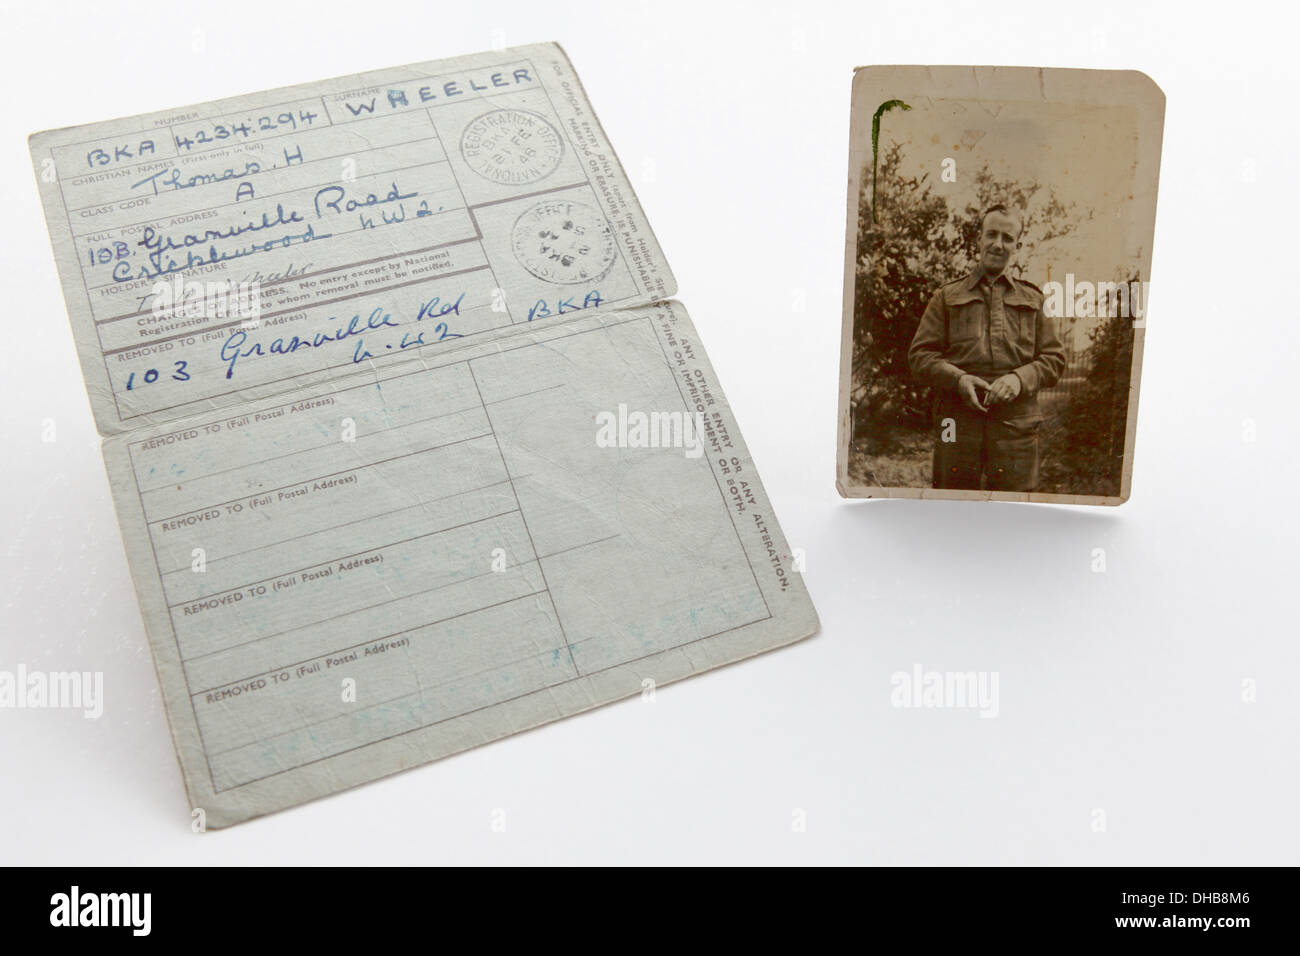 NUMBER
SURNAME
BKA 4234.294 WHEELER
CHRISTIAN NAMES (First only in full)
Thomas. H
CLASS CODE A
FULL POSTAL ADDRESS
10B. Granville Road
Cricklewood NW2.
HOLDER'S SIGNATURE
Wheeler
CHANGES OF ADDRESS. No entry except by National
Registration Officer, to whom removal must be notified.
REMOVED TO (Full Postal Address)
103 Granville Rd BKA
N.W2
NATIONAL REGISTRATION OFFICE
BKA
FE
48
OFFICE
BKA
REMOVED TO (Full Postal Address)
REMOVED TO (Full Postal Address)
REMOVED TO (Full Postal Address)
REMOVED TO (Full Postal Address)
FOR OFFICIAL ENTRY ONLY (apart from Holder's Signature); ANY OTHER ENTRY OR ANY ALTERATION,
MARKING OR ERASURE, IS PUNISHABLE BY A FINE OR IMPRISONMENT OR BOTH.
alamy
alamy
alamy
alamy
alamy
Image ID: DHB8M6
www.alamy.com